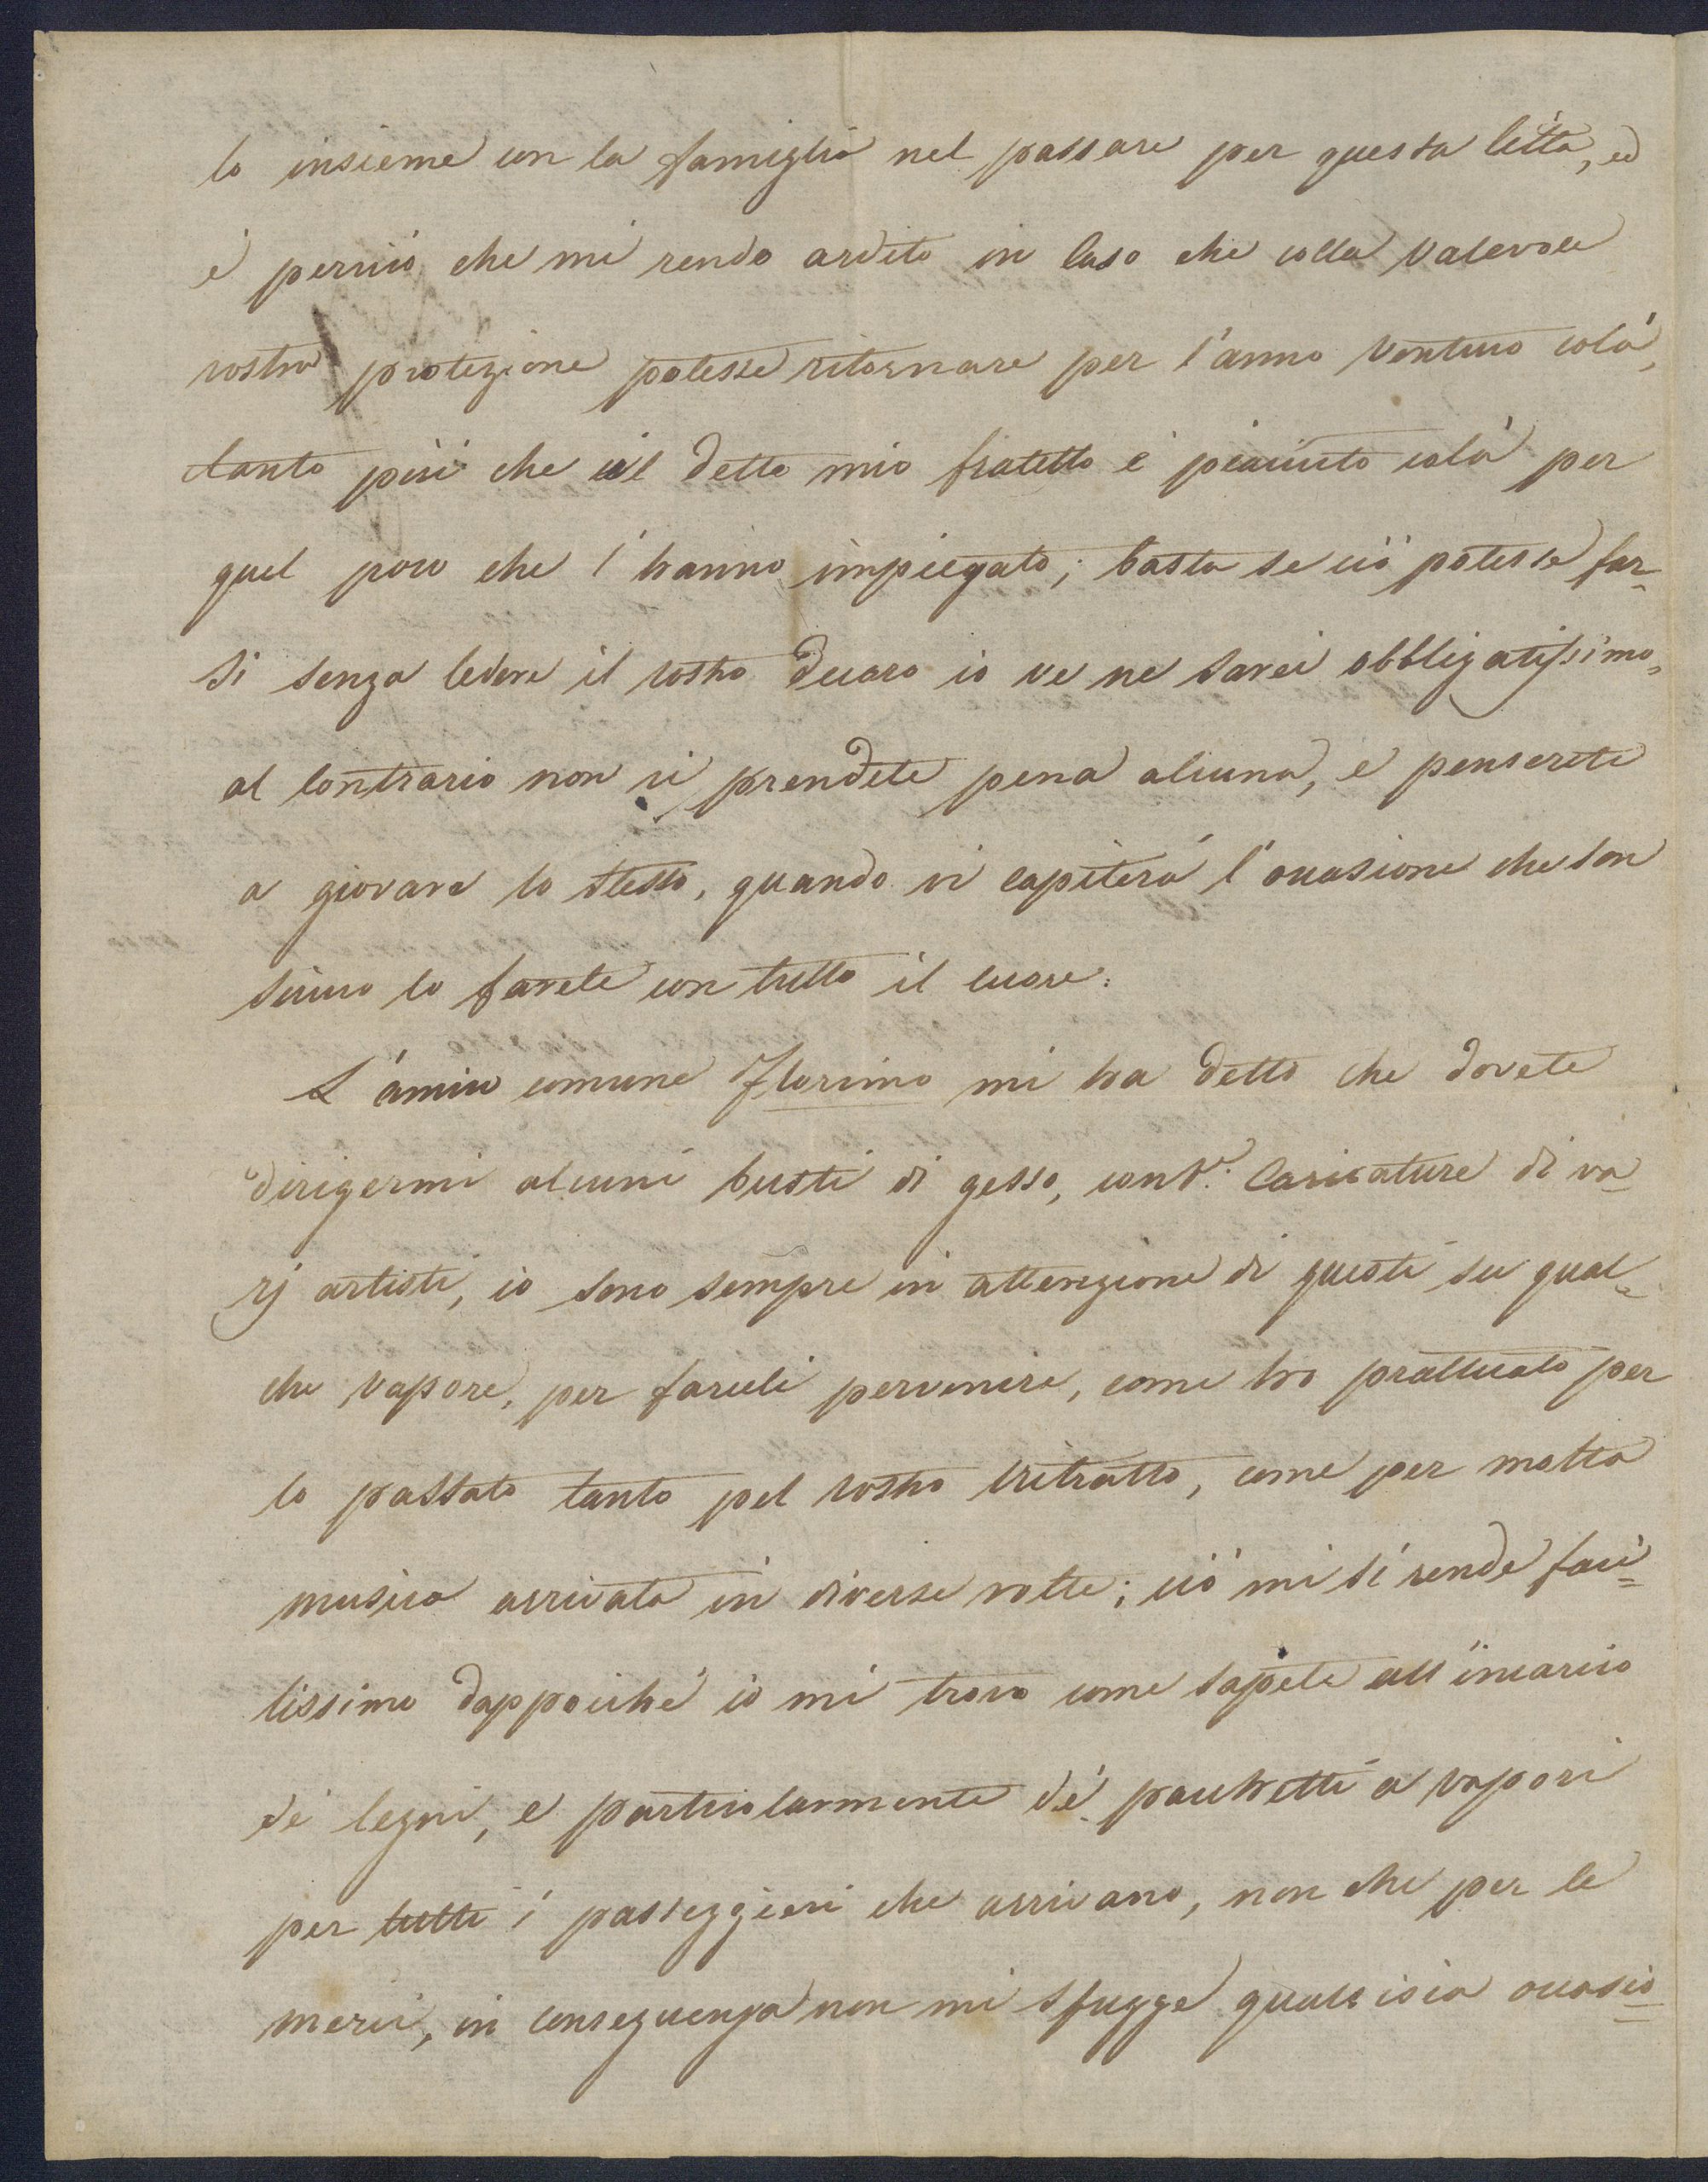 lo insieme con la famiglia nel passare per questa Città, ed
è perciò che mi rendo ardito in Caso che colla valevole
vostra protezione potesse ritornare per l'anno venturo colà,
tanto più che il detto mio fratello è piaciuto colà per
quel poco che l'hanno impiegato; basta se ciò potesse far-
si senza ledere il vostro decoro io ve ne sarei obbligatissimo,
al contrario non vi prendete pena alcuna, e penserete
a giovare lo stesso, quando vi capiterà l'occasione che son
sicuro lo farete con tutto il cuore.
L'amico comune Florimo mi ha detto che dovete
dirigermi alcuni busti di gesso, cont.e Caricature di va-
rj artisti, io sono sempre in attenzione di questi su qual-
che vapore, per farceli pervenire, come ho pratticato per
lo passato tanto pel vostro ritratto, come per molta
musica arrivata in diverse volte; ciò mi si rende faci=
lissimo dappoichè io mi trovo come sapete all'incarico
de' legni, e particolarmente de' pacchetti a vapori
per tutti i passeggieri che arrivano, non che per le
merci, in conseguenza non mi sfugge qualsisia occasio=